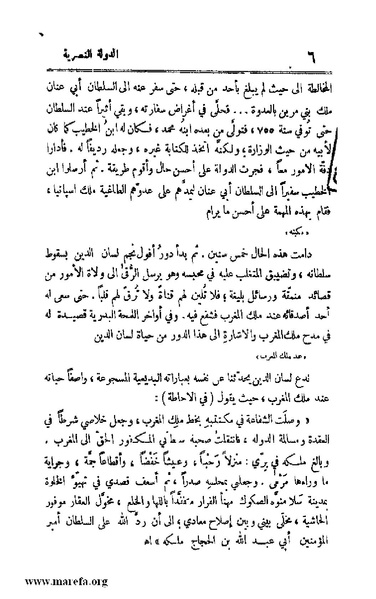 ٦ الدولة النصرية
المخالطة الى حيث لم يبلغ بأحد من قبله ، حتى سفر عنه الى السلطان أبي عنان
ملك بني مرين بالعدوة ... فجلّى في أغراض سفارته ، وبقي أثيراً عند السلطان
حتى توفي سنة ٧٥٥ ، فتولى من بعده ابنه محمد ، فكان له ابن الخطيب كما كان
لأبيه من حيث الوزارة ، ولكنه اتخذ للكتابة غيره ، وجعله رديفاً له . فأدارا
دفّة الامور معاً ، فجرت الدولة على أحسن حال وأقوم طريقة . ثم أرسلوا ابن
الخطيب سفيراً الى السلطان أبي عنان ليمدّهم على عدوّهم الطاغية ملك اسبانيا ،
فقام بهذه المهمة على أحسن ما يرام
دامت هذه الحال خمس سنين . ثم بدأ دور أفول نجم لسان الدين بسقوط
سلطانه ، وتضييق المتغلب عليه في محبسه وهو يرسل الرقى الى ولاة الأمور من
قصائد منمّقة ورسائل بليغة ؛ فلا تلين لهم قناة ولا ترقّ لهم قلباً . حتى سعى له
أحد أصدقائه عند ملك المغرب فشفع فيه . وفي أواخر اللمحة البدرية قصيدة له
في مدح ملك المغرب والاشارة الى هذا الدور من حياة لسان الدين
عند ملك المغرب
ندع لسان الدين يحدثنا عن نفسه بعباراته البديعية المسجوعة ، واصفاً حياته
عند ملك المغرب ، حيث يقول ( في الاحاطة ) :
« وصلت الشفاعة في مكتتبة بخط ملك المغرب ، وجعل خلاصي شرطاً في
العقدة ومسالمة الدولة ، فانتقلت صحبة سلطاني المكفور الحق الى المغرب .
وبالغ ملكه في برّي : منزلاً رحباً ، وعيشاً خفضاً ، وأقطاعاً جمّة ، وجراية
ما وراءها مرمى . وجعلني بمجلسه صدراً ، ثم أسعف قصدي في تهيؤ الخلوة
بمدينة سلا منوه الصكوك مهنأ القرار متفقداً باللها والخلع ، مخول العقار موفور
الحاشية ، مخلّى بيني وبين إصلاح معادي ؛ الى أن ردّ الله على السلطان أمير
المؤمنين أبي عبد الله بن الحجاج ملكه » اه
www.marefa.org